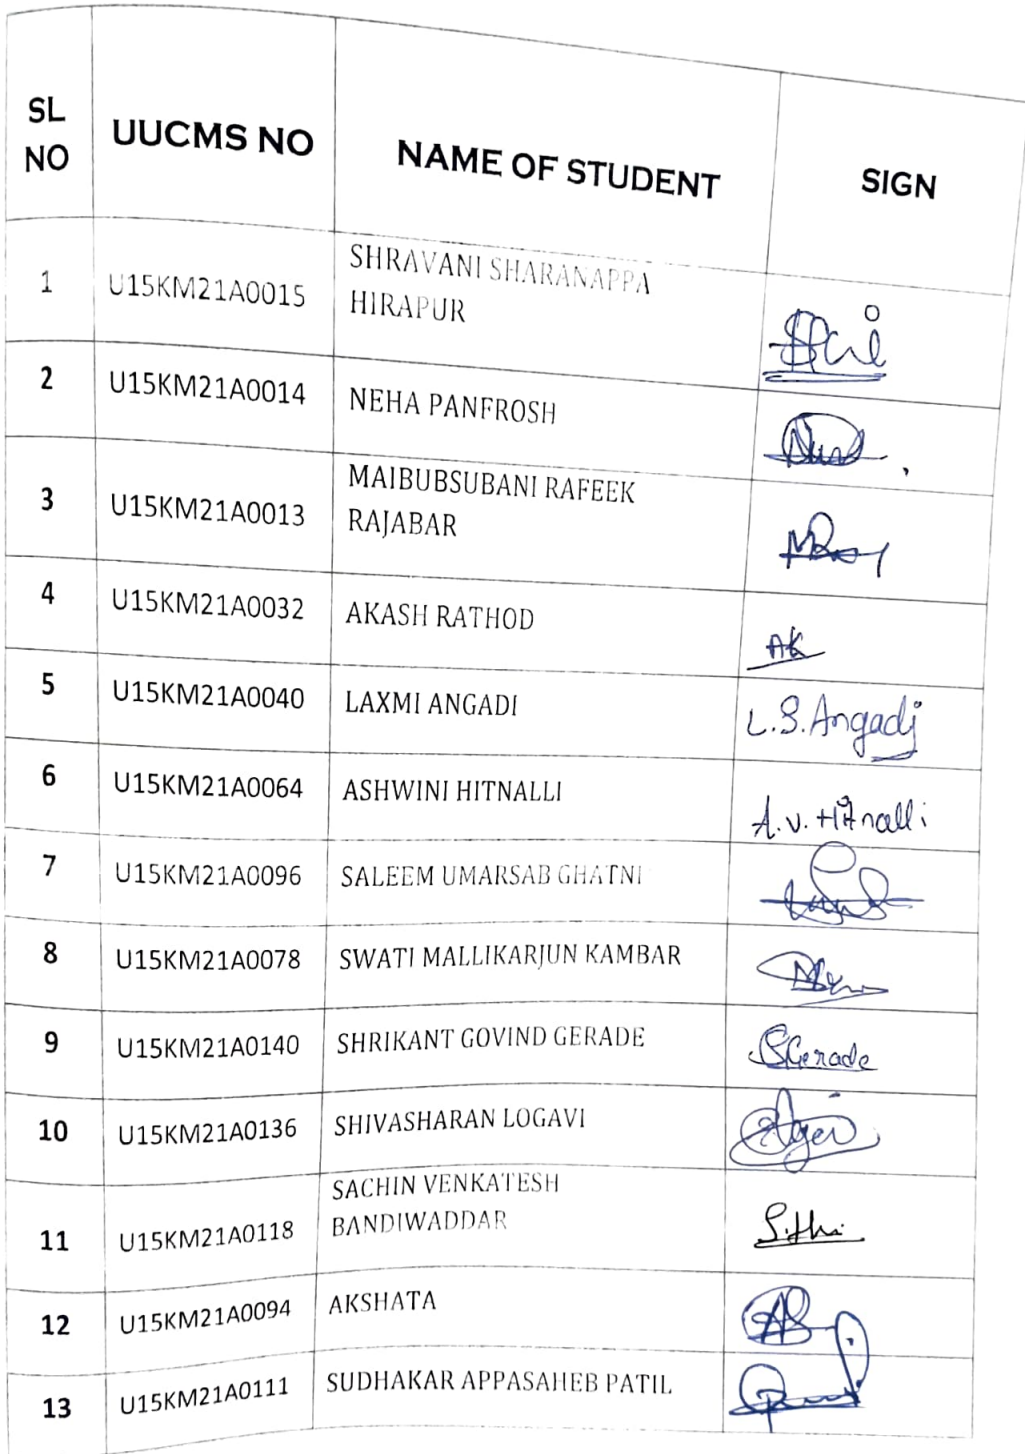 SL NO UUCMS NO NAME OF STUDENT SIGN
1 U15KM21A0015 SHRAVANI SHARANAPPA
HIRAPUR
2 U15KM21A0014 NEHA PANFROSH
3 U15KM21A0013 MAIBUBSUBANI RAFEEK
RAJABAR
4 U15KM21A0032 AKASH RATHOD AK
5 U15KM21A0040 LAXMI ANGADI L.S.Angadi
6 U15KM21A0064 ASHWINI HITNALLI A.V. Hitnalli
7 U15KM21A0096 SALEEM UMARSAB GHATNI
8 U15KM21A0078 SWATI MALLIKARJUN KAMBAR
9 U15KM21A0140 SHRIKANT GOVIND GERADE SGerade
10 U15KM21A0136 SHIVASHARAN LOGAVI
11 U15KM21A0118 SACHIN VENKATESH
BANDIWADDAR
12 U15KM21A0094 AKSHATA
13 U15KM21A0111 SUDHAKAR APPASAHEB PATIL